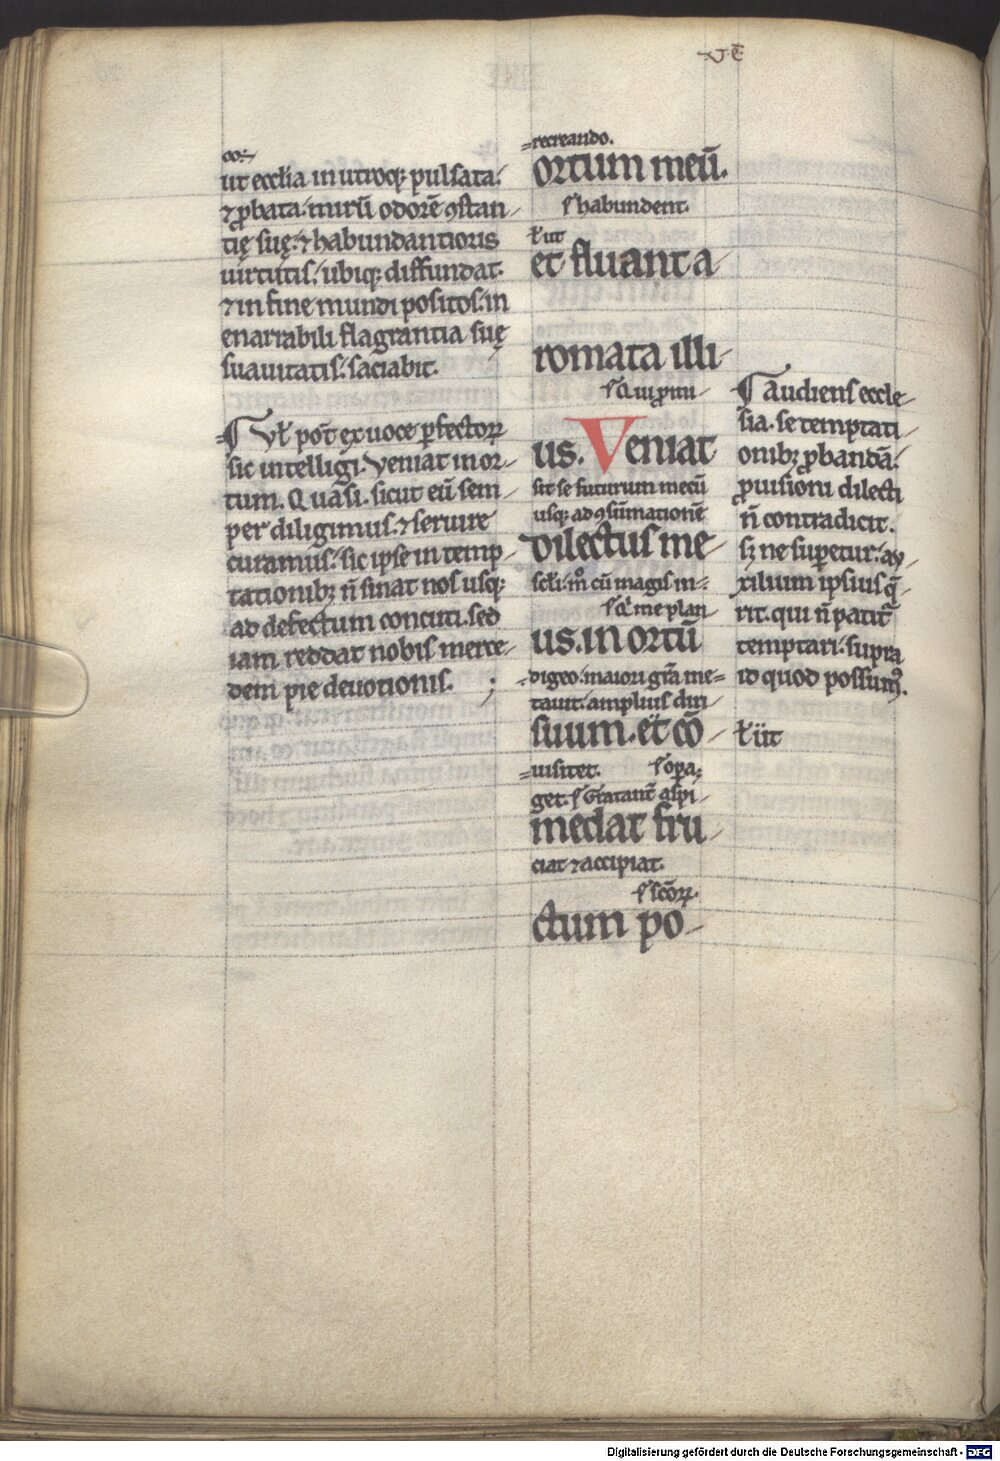 ut ecclia in utroq; pulsata.
⁊ ꝓbata. mirū odorē ꝯstan
tię suę. ⁊ habundantioris
uirtutis. ubiq; diffundat.
⁊ in fine mundi positos. in
enarrabili flagrantia suę
suauitatis. saciabit.
Vł pot̄ ex uoce ꝑfectoꝝ
sic intelligi. Veniat in or
tum. Quasi. sicut eū sem
per diligimus. ⁊ seruire
curamus. sic ipse in temp
tationibꝫ n̄ sinat nos usq;
ad defectum concuti. sed
iam reddat nobis merce
dem pie deuotionis.
recreando.
ortum meū.
s habundent.
ł ut
et fluant a
romata illi
us. Veniat
sit se futurum mecū
usq; ad ꝯsūmationē
dilectus me
scłi. cū magis in
me plan
us. in ortū
digeo. maiori gr̄a me
tauit. amplius diu
suum. et cō
uisitet.
get.
medat fru
ciat ⁊ accipiat.
s scōꝝ.
ctum po
Audiens eccle
sia. se temptati
onibꝫ ꝓbandā.
ꝓuisioni dilecti
n̄ contradicit.
sꝫ ne suꝑetur. au
xilium ipsius q̄
rit. qui n̄ patit᷑
temptari. supra
id quod possum᷒.
Digitalisierung gefördert durch die Deutsche Forschungsgemeinschaft - DFG